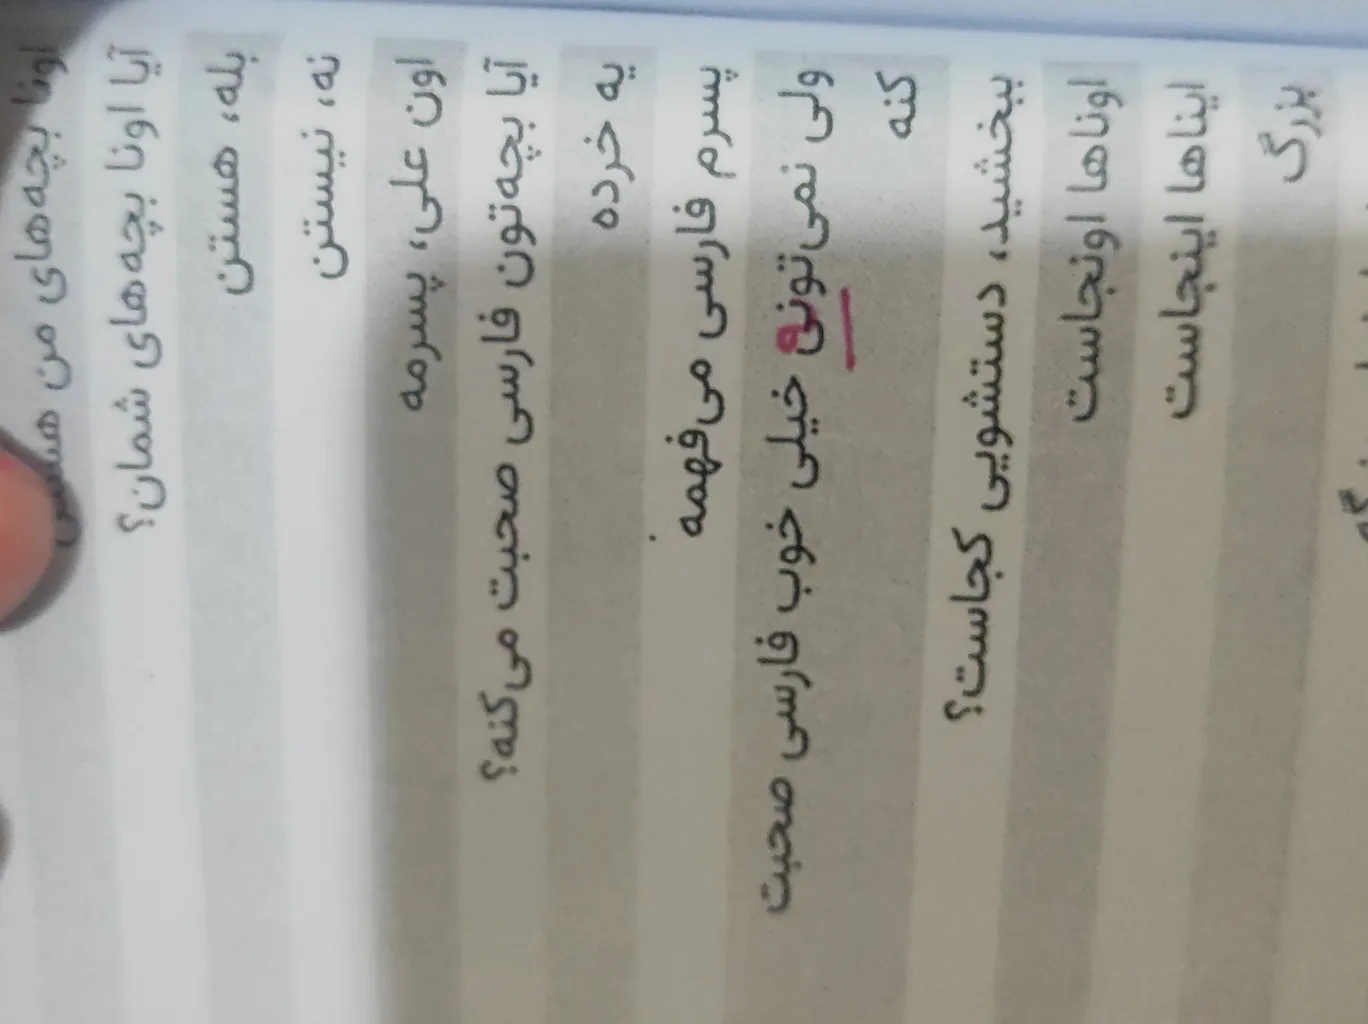 اونا بچه‌های من هستن
آیا اونا بچه‌های شمان؟
بله، هستن
نه، نیستن
اون علی، پسرمه
آیا بچه‌تون فارسی صحبت می‌کنه؟
یه خرده
پسرم فارسی می‌فهمه
ولی نمی‌تونی خیلی خوب فارسی صحبت
کنه
ببخشید، دستشویی کجاست؟
اوناها اونجاست
ایناها اینجاست
بزرگ